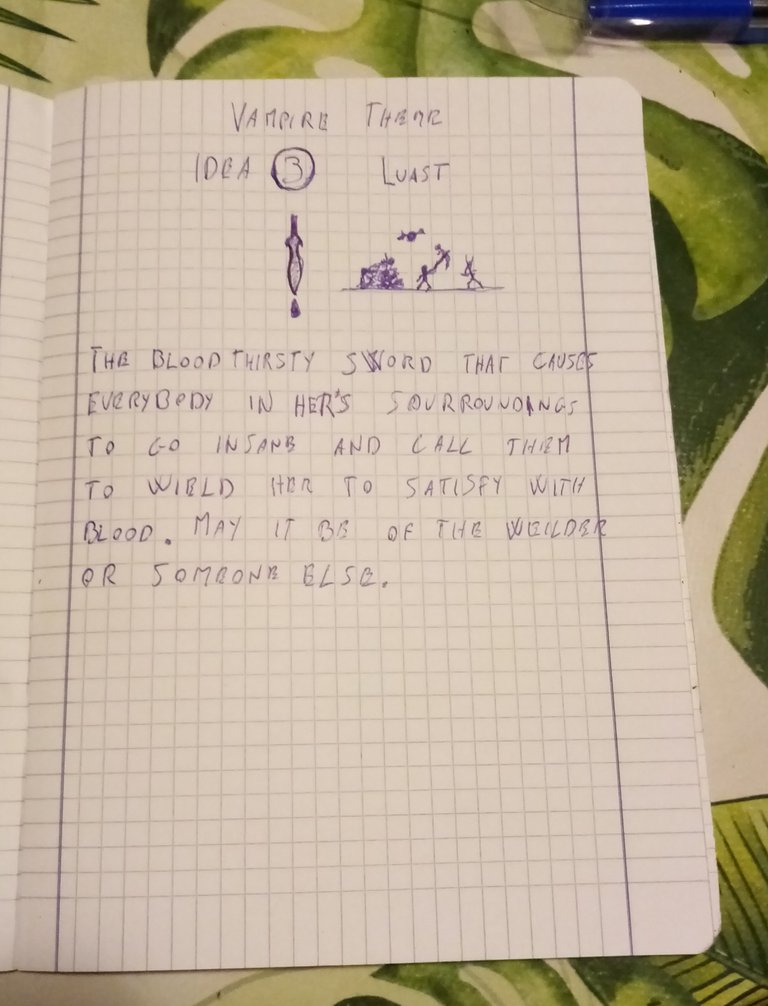 VAMPIRE THEME
IDEA 3 LUAST
THE BLOODTHIRSTY SWORD THAT CAUSES
EVERYBODY IN HER'S SOURROUNDINGS
TO GO INSANE AND CALL THEM
TO WIELD HER TO SATISFY WITH
BLOOD. MAY IT BE OF THE WEILDER
OR SOMEONE ELSE.